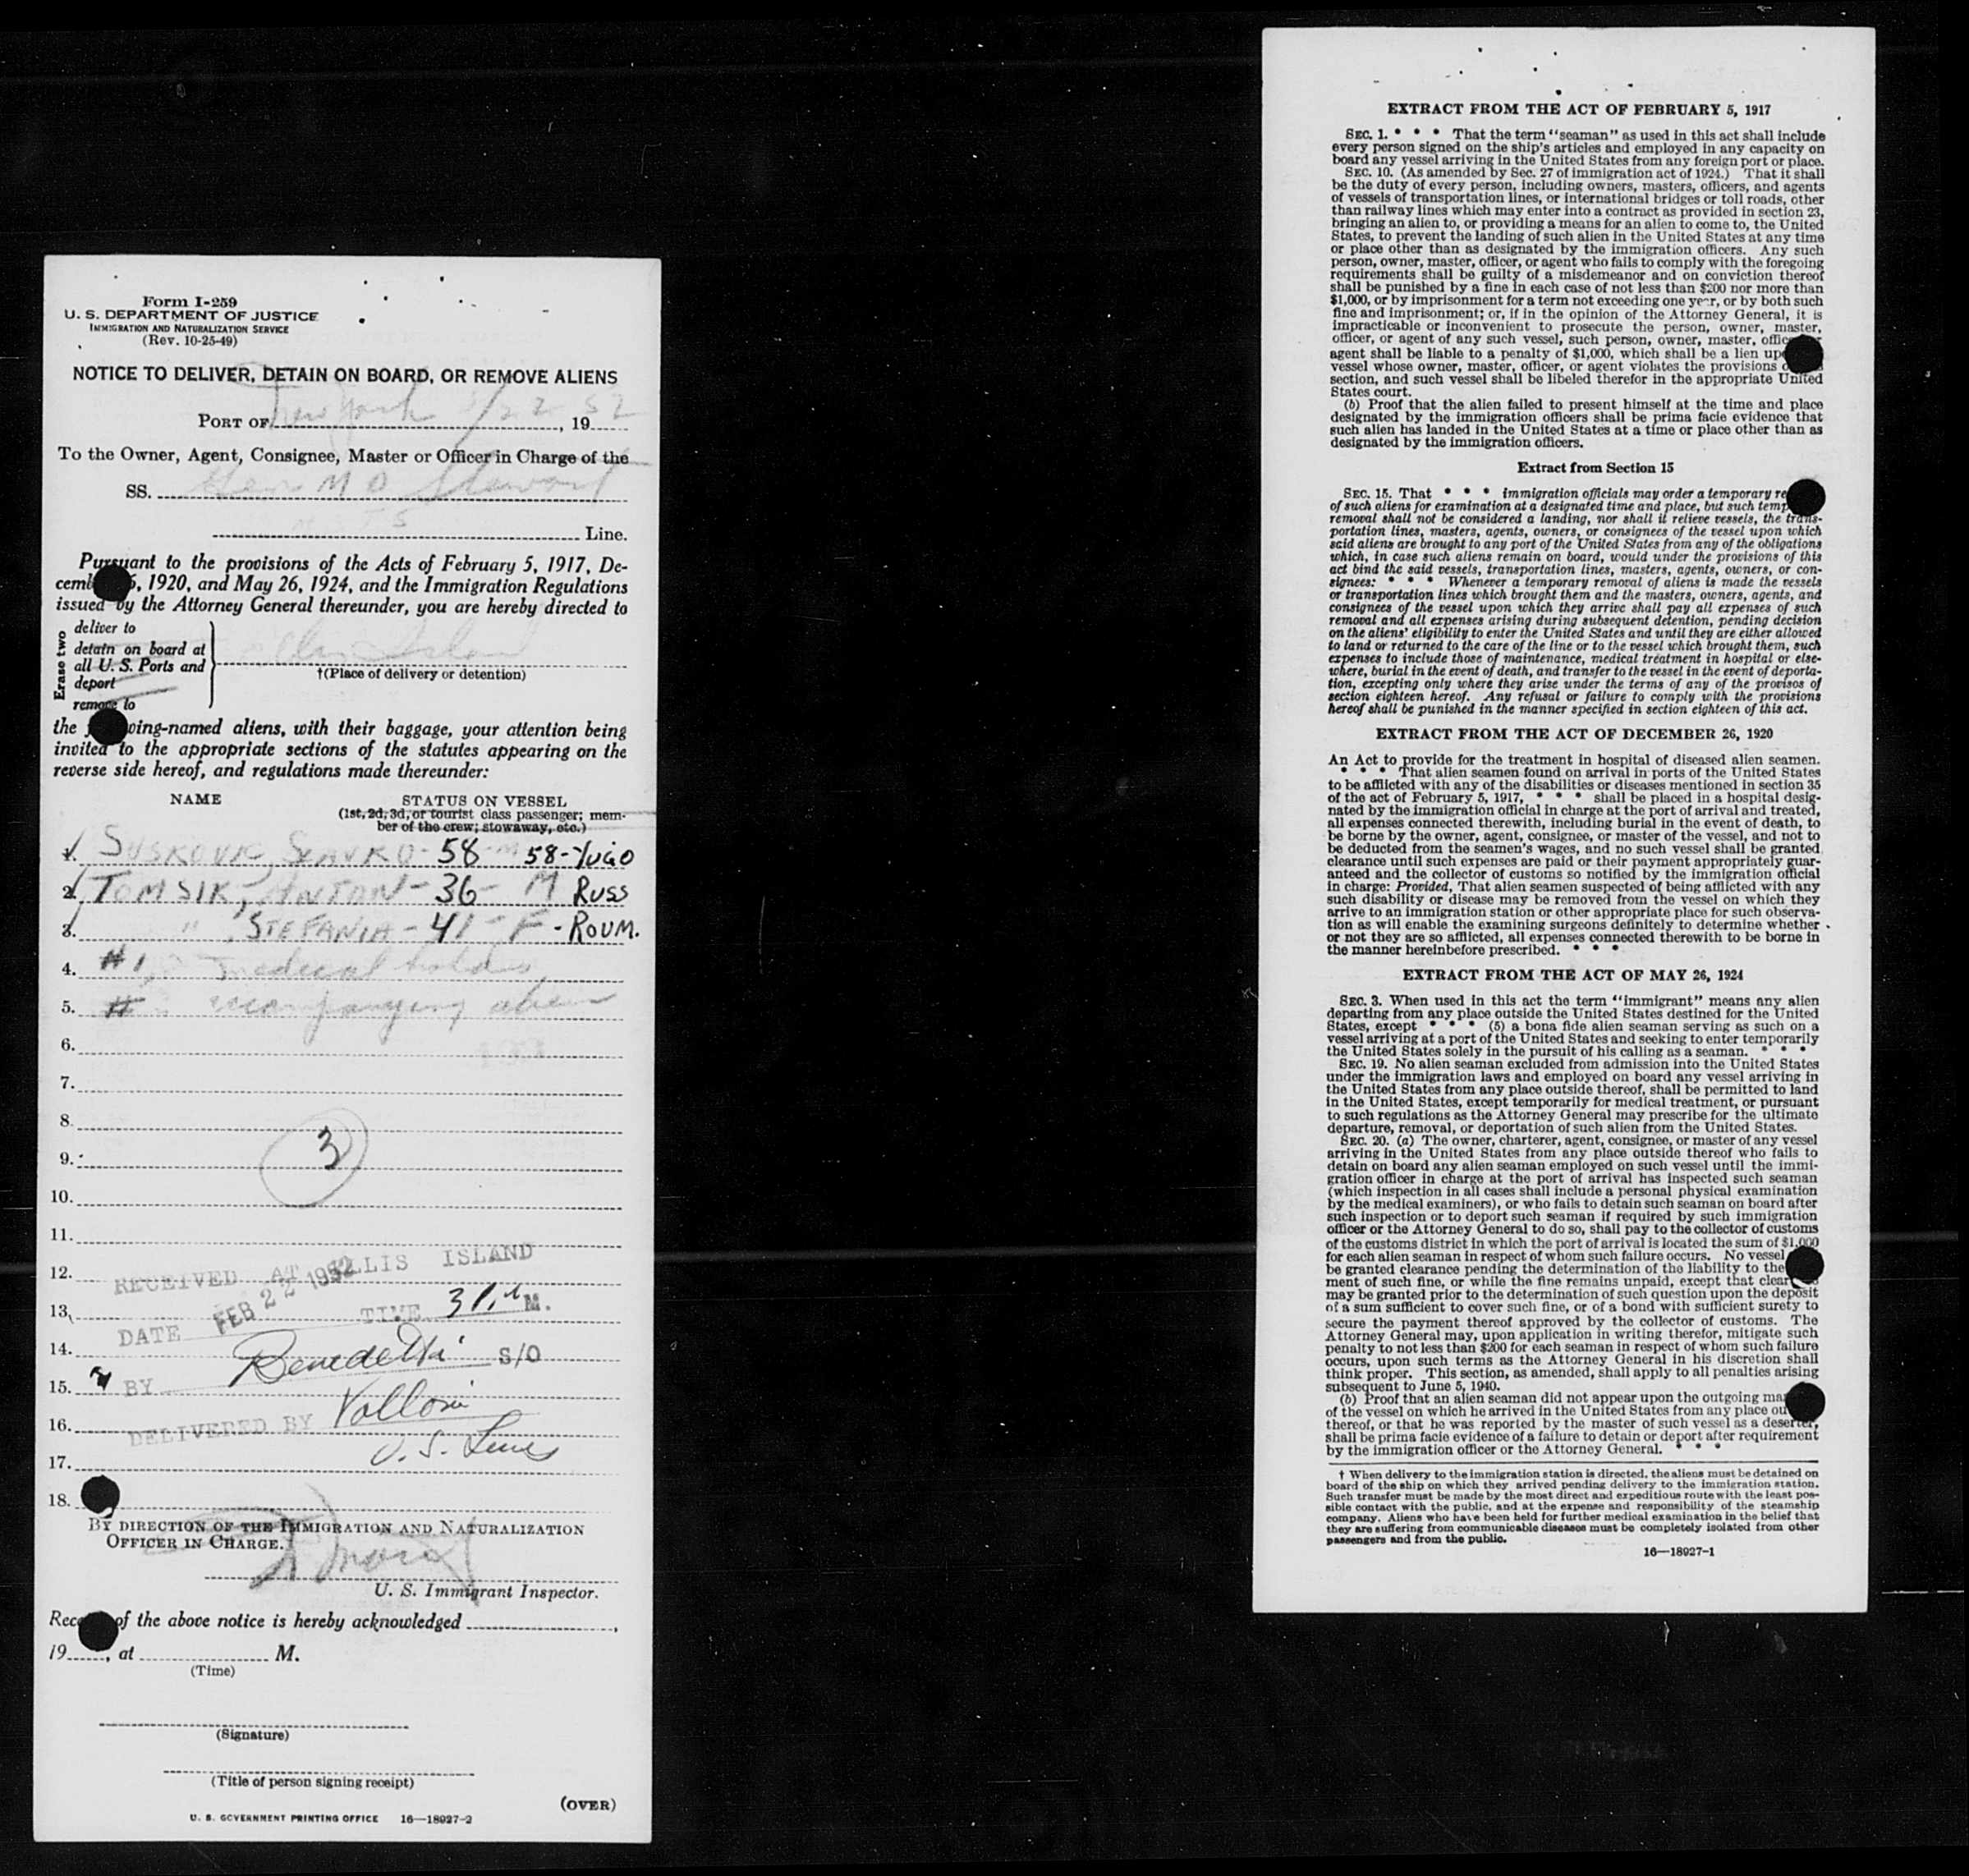 Form I-259
U. S. DEPARTMENT OF JUSTICE
IMMIGRATION AND NATURALIZATION SERVICE
(Rev. 10-25-49)
NOTICE TO DELIVER, DETAIN ON BOARD, OR REMOVE ALIENS
PORT OF New York 2/22, 1952
To the Owner, Agent, Consignee, Master or Officer in Charge of the
SS. Gen M D Stewart
Line.
Pursuant to the provisions of the Acts of February 5, 1917, De-
cem 6, 1920, and May 26, 1924, and the Immigration Regulations
issued by the Attorney General thereunder, you are hereby directed to
Erase two
deliver to
detain on board at
all U. S. Ports and
deport
remove to
Ellis Island
†(Place of delivery or detention)
the owing-named aliens, with their baggage, your attention being
invited to the appropriate sections of the statutes appearing on the
reverse side hereof, and regulations made thereunder:
NAME
STATUS ON VESSEL
(1st, 2d, 3d, or tourist class passenger; mem-
ber of the crew; stowaway, etc.)
1. SUSKOVIC, SLAVKO - 58 - M 58 - YUGO
2. TOMSIK, ANTON - 36 - M RUSS
3. " , STEFANIA - 41 - F - ROUM.
4. #1, medical holds
5. # accompanying alien
6.
7.
8.
3
9.
10.
11.
12.
RECEIVED AT ELLIS ISLAND
13.
DATE FEB 22 1952 TIME 3 M.
14.
Benedetti S/O
15. BY
16.
DELIVERED BY Valloni
17. U. S. Lines
18.
BY DIRECTION OF THE IMMIGRATION AND NATURALIZATION
OFFICER IN CHARGE.
U. S. Immigrant Inspector.
Rece of the above notice is hereby acknowledged ,
19 , at M.
(Time)
(Signature)
(Title of person signing receipt)
(OVER)
U. S. GOVERNMENT PRINTING OFFICE 16—18927-2
EXTRACT FROM THE ACT OF FEBRUARY 5, 1917
SEC. 1. * * * That the term "seaman" as used in this act shall include
every person signed on the ship's articles and employed in any capacity on
board any vessel arriving in the United States from any foreign port or place.
SEC. 10. (As amended by Sec. 27 of immigration act of 1924.) That it shall
be the duty of every person, including owners, masters, officers, and agents
of vessels of transportation lines, or international bridges or toll roads, other
than railway lines which may enter into a contract as provided in section 23,
bringing an alien to, or providing a means for an alien to come to, the United
States, to prevent the landing of such alien in the United States at any time
or place other than as designated by the immigration officers. Any such
person, owner, master, officer, or agent who fails to comply with the foregoing
requirements shall be guilty of a misdemeanor and on conviction thereof
shall be punished by a fine in each case of not less than $200 nor more than
$1,000, or by imprisonment for a term not exceeding one year, or by both such
fine and imprisonment; or, if in the opinion of the Attorney General, it is
impracticable or inconvenient to prosecute the person, owner, master,
officer, or agent of any such vessel, such person, owner, master, offic
agent shall be liable to a penalty of $1,000, which shall be a lien up
vessel whose owner, master, officer, or agent violates the provisions o
section, and such vessel shall be libeled therefor in the appropriate United
States court.
(b) Proof that the alien failed to present himself at the time and place
designated by the immigration officers shall be prima facie evidence that
such alien has landed in the United States at a time or place other than as
designated by the immigration officers.
Extract from Section 15
SEC. 15. That * * * immigration officials may order a temporary re
of such aliens for examination at a designated time and place, but such temp
removal shall not be considered a landing, nor shall it relieve vessels, the trans-
portation lines, masters, agents, owners, or consignees of the vessel upon which
said aliens are brought to any port of the United States from any of the obligations
which, in case such aliens remain on board, would under the provisions of this
act bind the said vessels, transportation lines, masters, agents, owners, or con-
signees: * * * Whenever a temporary removal of aliens is made the vessels
or transportation lines which brought them and the masters, owners, agents, and
consignees of the vessel upon which they arrive shall pay all expenses of such
removal and all expenses arising during subsequent detention, pending decision
on the aliens' eligibility to enter the United States and until they are either allowed
to land or returned to the care of the line or to the vessel which brought them, such
expenses to include those of maintenance, medical treatment in hospital or else-
where, burial in the event of death, and transfer to the vessel in the event of deporta-
tion, excepting only where they arise under the terms of any of the provisos of
section eighteen hereof. Any refusal or failure to comply with the provisions
hereof shall be punished in the manner specified in section eighteen of this act.
EXTRACT FROM THE ACT OF DECEMBER 26, 1920
An Act to provide for the treatment in hospital of diseased alien seamen.
* * * That alien seamen found on arrival in ports of the United States
to be afflicted with any of the disabilities or diseases mentioned in section 35
of the act of February 5, 1917, * * * shall be placed in a hospital desig-
nated by the immigration official in charge at the port of arrival and treated,
all expenses connected therewith, including burial in the event of death, to
be borne by the owner, agent, consignee, or master of the vessel, and not to
be deducted from the seamen's wages, and no such vessel shall be granted
clearance until such expenses are paid or their payment appropriately guar-
anteed and the collector of customs so notified by the immigration official
in charge: Provided, That alien seamen suspected of being afflicted with any
such disability or disease may be removed from the vessel on which they
arrive to an immigration station or other appropriate place for such observa-
tion as will enable the examining surgeons definitely to determine whether
or not they are so afflicted, all expenses connected therewith to be borne in
the manner hereinbefore prescribed. * * *
EXTRACT FROM THE ACT OF MAY 26, 1924
SEC. 3. When used in this act the term "immigrant" means any alien
departing from any place outside the United States destined for the United
States, except * * * (5) a bona fide alien seaman serving as such on a
vessel arriving at a port of the United States and seeking to enter temporarily
the United States solely in the pursuit of his calling as a seaman. * * *
SEC. 19. No alien seaman excluded from admission into the United States
under the immigration laws and employed on board any vessel arriving in
the United States from any place outside thereof, shall be permitted to land
in the United States, except temporarily for medical treatment, or pursuant
to such regulations as the Attorney General may prescribe for the ultimate
departure, removal, or deportation of such alien from the United States.
SEC. 20. (a) The owner, charterer, agent, consignee, or master of any vessel
arriving in the United States from any place outside thereof who fails to
detain on board any alien seaman employed on such vessel until the immi-
gration officer in charge at the port of arrival has inspected such seaman
(which inspection in all cases shall include a personal physical examination
by the medical examiners), or who fails to detain such seaman on board after
such inspection or to deport such seaman if required by such immigration
officer or the Attorney General to do so, shall pay to the collector of customs
of the customs district in which the port of arrival is located the sum of $1,000
for each alien seaman in respect of whom such failure occurs. No vessel
be granted clearance pending the determination of the liability to the
ment of such fine, or while the fine remains unpaid, except that clear
may be granted prior to the determination of such question upon the deposit
of a sum sufficient to cover such fine, or of a bond with sufficient surety to
secure the payment thereof approved by the collector of customs. The
Attorney General may, upon application in writing therefor, mitigate such
penalty to not less than $200 for each seaman in respect of whom such failure
occurs, upon such terms as the Attorney General in his discretion shall
think proper. This section, as amended, shall apply to all penalties arising
subsequent to June 5, 1940.
(b) Proof that an alien seaman did not appear upon the outgoing ma
of the vessel on which he arrived in the United States from any place ou
thereof, or that he was reported by the master of such vessel as a deserter,
shall be prima facie evidence of a failure to detain or deport after requirement
by the immigration officer or the Attorney General. * * *
† When delivery to the immigration station is directed, the aliens must be detained on
board of the ship on which they arrived pending delivery to the immigration station.
Such transfer must be made by the most direct and expeditious route with the least pos-
sible contact with the public, and at the expense and responsibility of the steamship
company. Aliens who have been held for further medical examination in the belief that
they are suffering from communicable diseases must be completely isolated from other
passengers and from the public.
16—18927-1